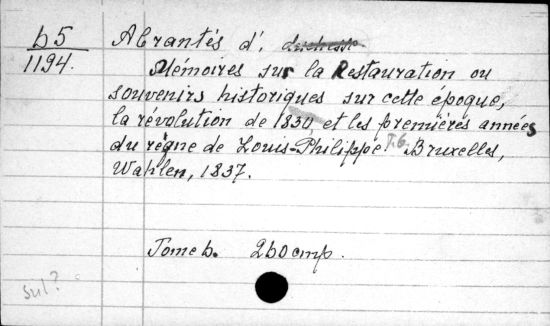 b5
1194.
Abrantés d'. duchesse.
Mémoires sur la Restauration ou
souvenirs historiques sur cette époque,
la révolution de 1830, et les premiéres années
du règne de Louis-Philippe. T.6. Bruxelles,
Wahlen, 1837.
Tome 6. 260 cmp.
sul?